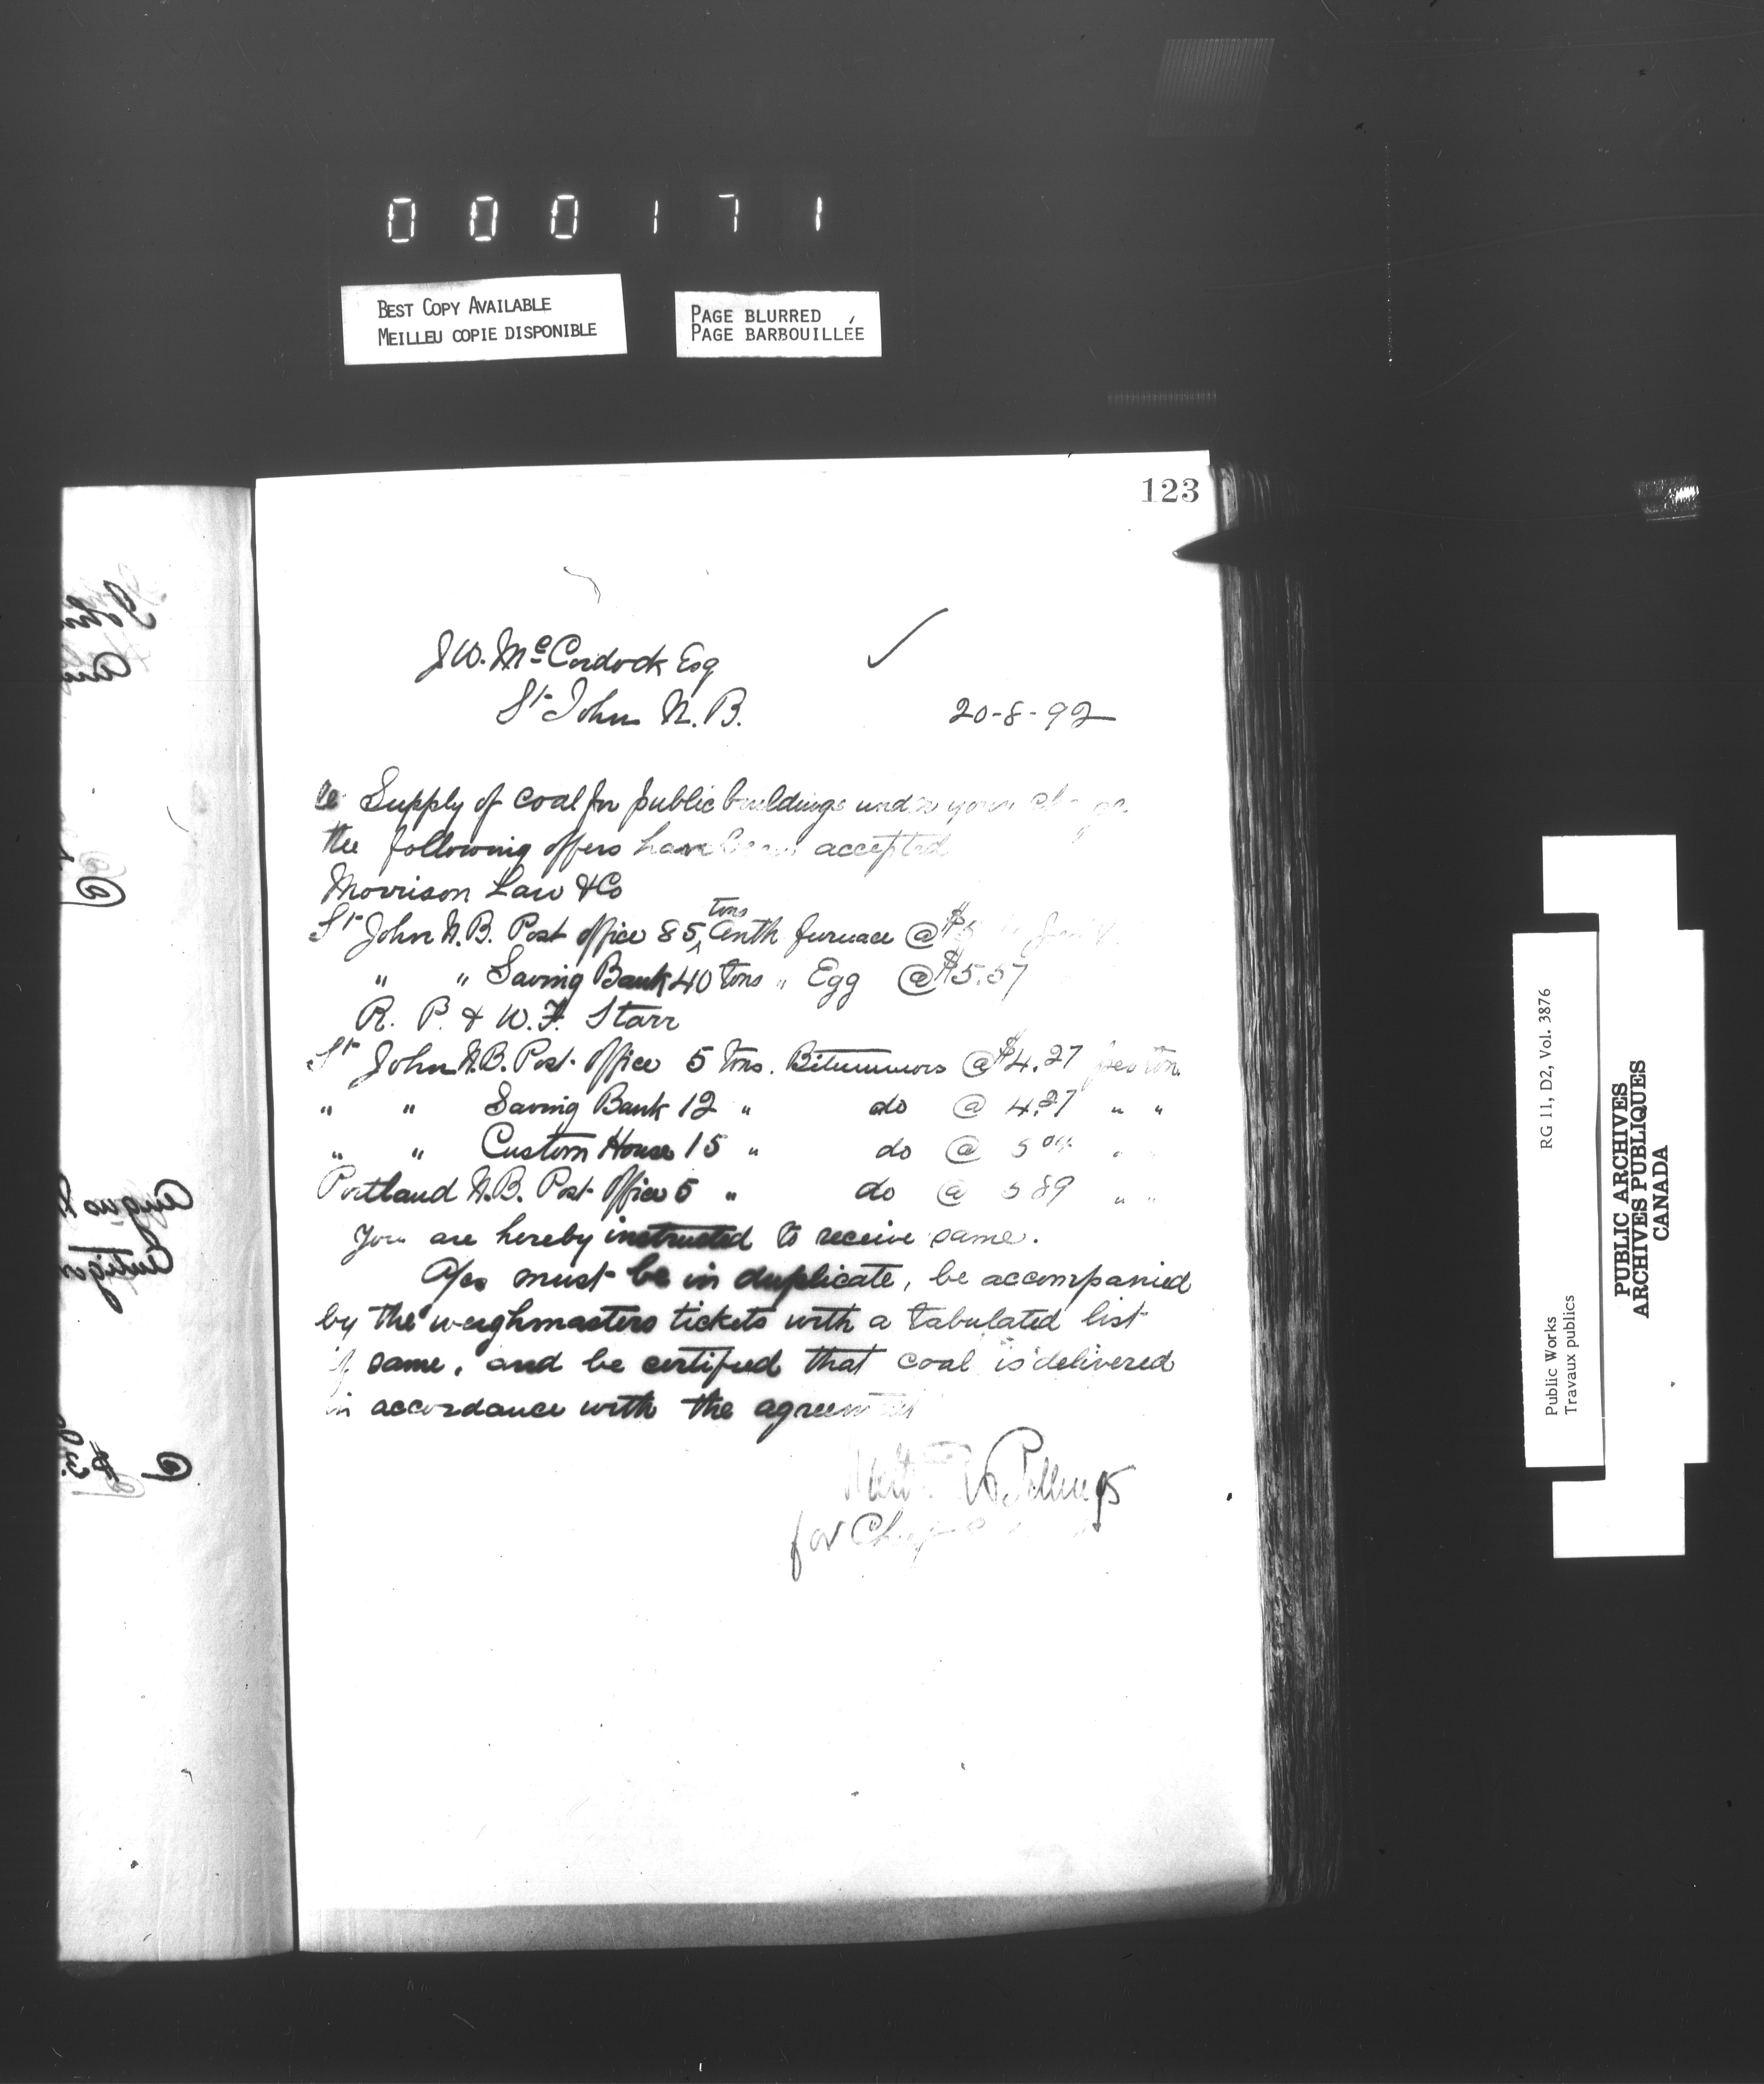 000171
BEST COPY AVAILABLE
MEILLEU COPIE DISPONIBLE
PAGE BLURRED
PAGE BARBOUILLÉE
123
J.W. McCordock Esq
St John N.B.
20-8-92
re Supply of coal for public buildings under your
the following offers have been accepted
Morrison Law & Co
St John N.B. Post office 85 tons Anth furnace @ $5
" " Saving Bank 40 tons " Egg @ $5.57
R. P. & W. F. Starr
St John N.B. Post Office 5 tons. Bituminous @ $4.27 per ton
" " Saving Bank 12 " do @ 4.27 " "
" " Custom House 15 " do @ 5 04 " "
Portland N.B. Post Office 5 " do @ 5 89 " "
You are hereby instructed to receive same.
A/cs must be in duplicate, be accompanied
by the weighmasters tickets with a tabulated list
of same, and be certified that coal is delivered
in accordance with the agreement
for Chief
RG 11, D2, Vol. 3876
Public Works
Travaux publics
PUBLIC ARCHIVES
ARCHIVES PUBLIQUES
CANADA